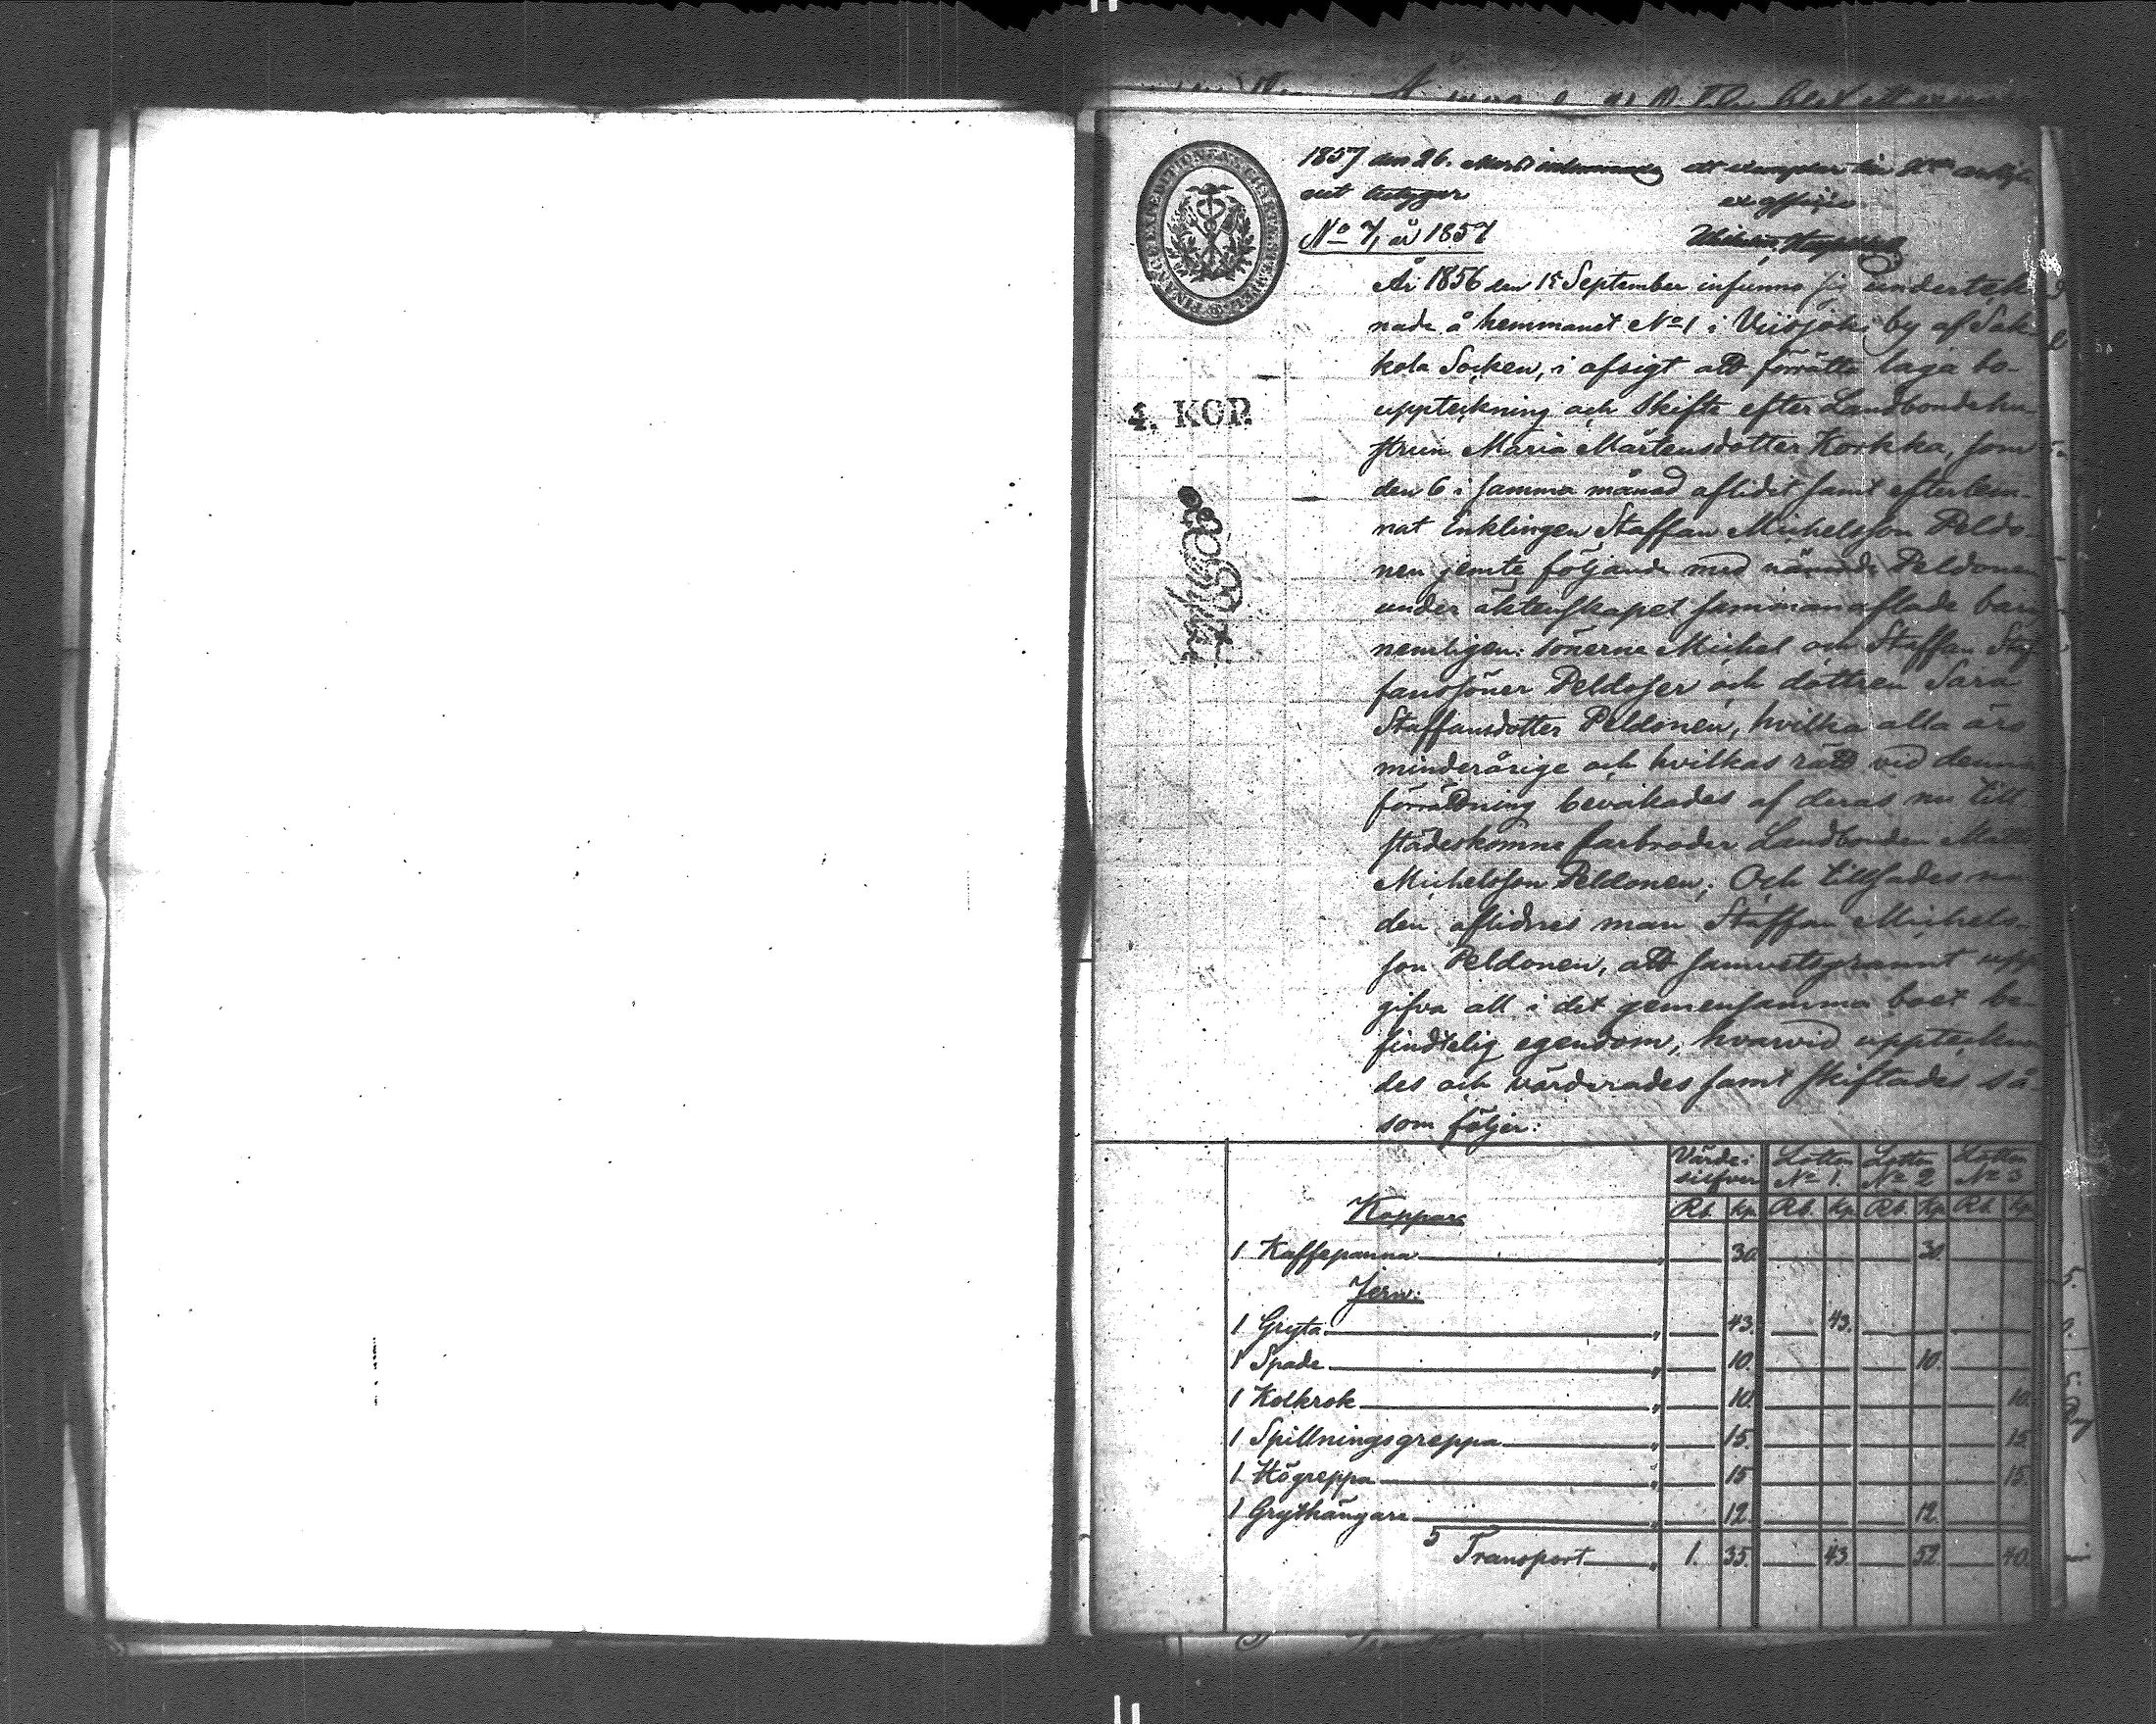 1857 den 26. Mars inlemnade ett exemplar
betygar
ex officio
No 7, år 1857
År 1856 den 15 September infunno sig underteck-
nade å hemmanet No 1 i Viisjoki by af Sak-
kola Socken, i afsigt att förrätta laga bo-
uppteckning och skifte efter Landbondehu-
strun Maria Mårtensdotter Korkka, som
den 6 i samma månad aflidit samt efterlem-
nat Enklingen Staffan Michelsson Peldo-
nen jemte följande med nämnde Peldonen
under äktenskapet sammanaflade barn
nemligen: sönerne Michel och Staffan Staf-
fanssöner Peldoser och dottren Sara
Staffansdotter Peldonen, hvilka alla äro
minderårige och hvilkas rätt vid denna
förrättning bevakades af deras nu till-
städeskomne farbroder Landbonden Matts
Michelsson Peldonen; Och tillsades nu
den aflidnes man Staffan Michels-
son Peldonen, att samvetsgrannt upp-
gifva all i det gemensamma boet be-
findtelig egendom, hvarvid uppteckna-
des och värderades samt skiftades så-
som följer:
4. KOP.
Värde i silfver Lotten No 1. Lotten No 2 Lotten No 3
Koppar: Rb. Kp. Rb. Kp. Rb. Kp. Rb. Kp.
1 Kaffepanna " 30. 30.
Jern:
1 Gryta " 43. 43.
1 Spade " 10. 10.
1 Kolkrok " 10. 10.
1 Spillningsgreppa " 15. 15.
1 Högreppa " 15. 15.
1 Grythängare " 12. 12.
Transport " 1. 35. 43. 52. 40.